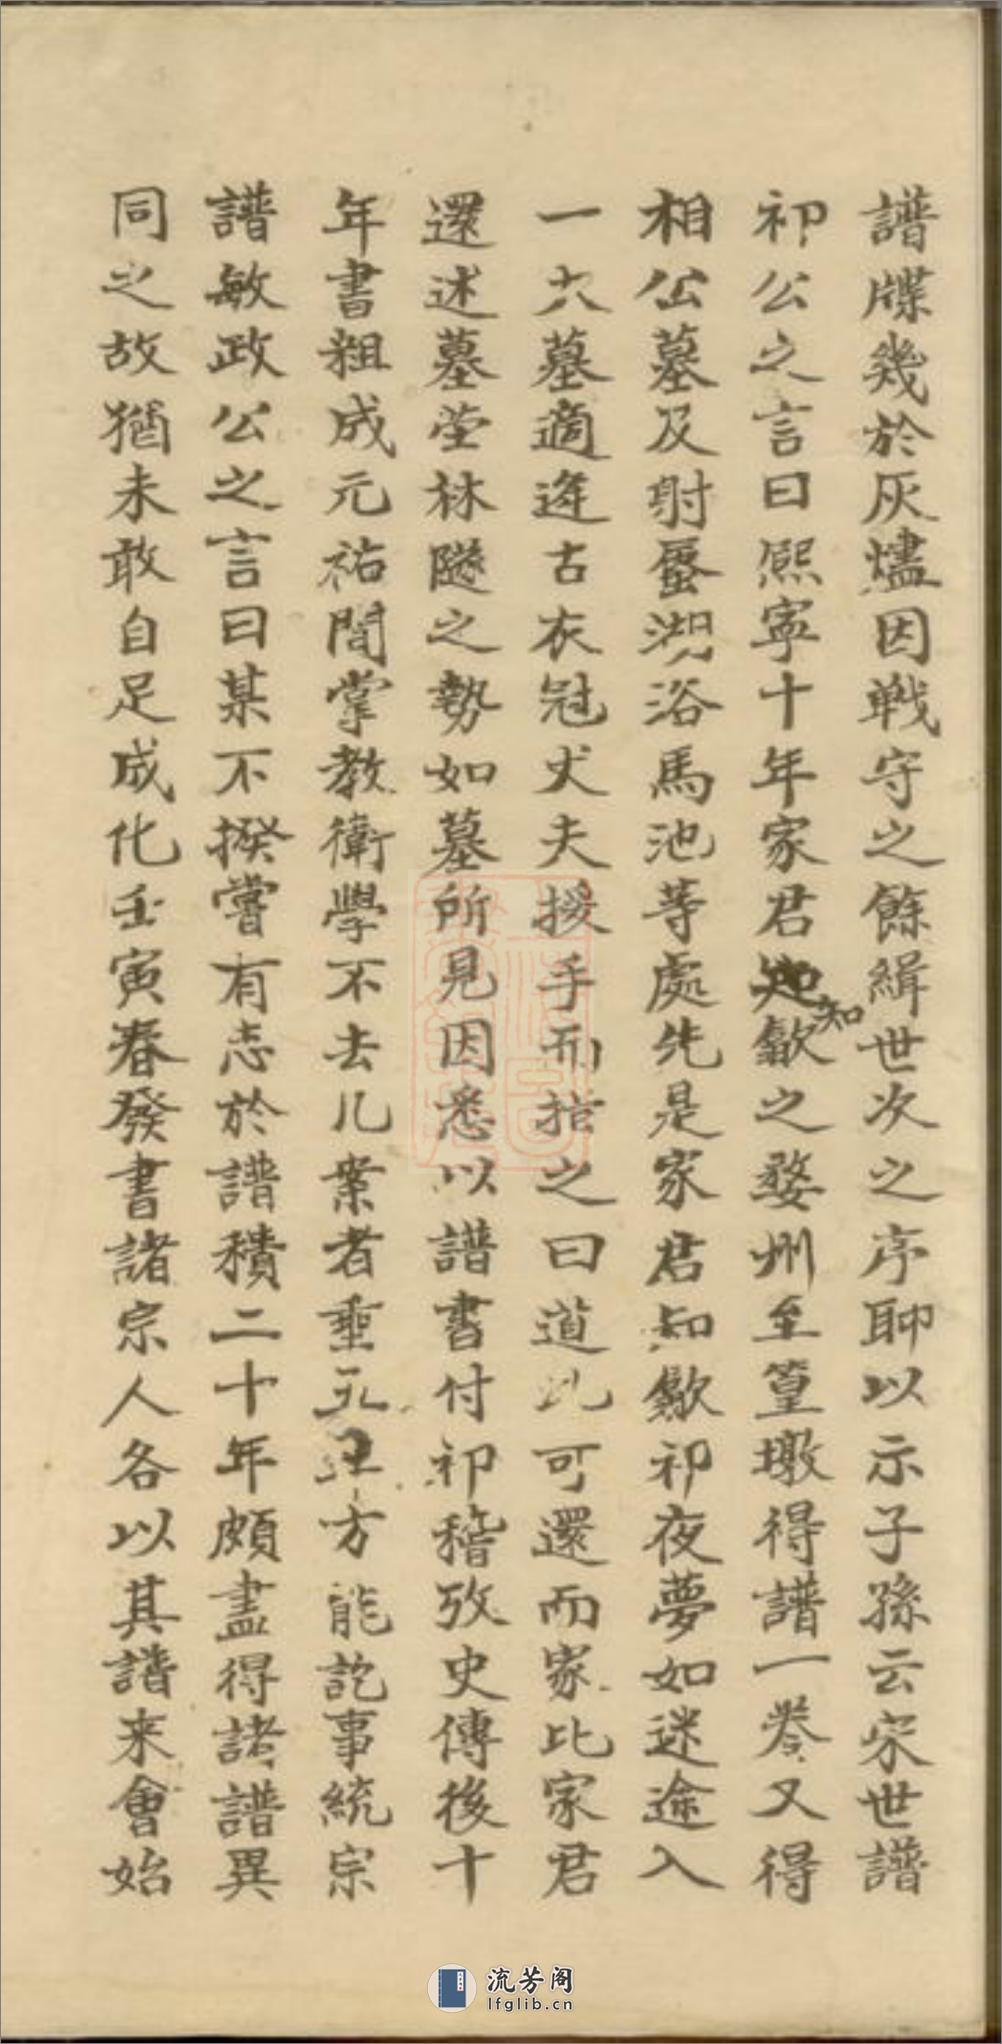 譜牒幾於灰燼因戦守之餘緝世次之序聊以示子孫云宋世譜
祁公之言曰熈寧十年家君知歙之婺州至篁墩得譜一卷又得
知
相公墓及射蜃湖浴馬池等處先是家君知歙祁夜夢如迷途入
一大墓適逢古衣冠丈夫援手而指之曰道此可還而家比家君
還述墓塋林隧之勢如墓所見因悉以譜書付祁稽攷史傳後十
年書粗成元祐間掌教衛學不去几案者重九年方能訖事統宗
譜敏政公之言曰某不揆嘗有志於譜積二十年頗盡得諸譜異
同之故猶未敢自足成化壬寅春發書諸宗人各以其譜来會始
流芳阁
lfglib.cn